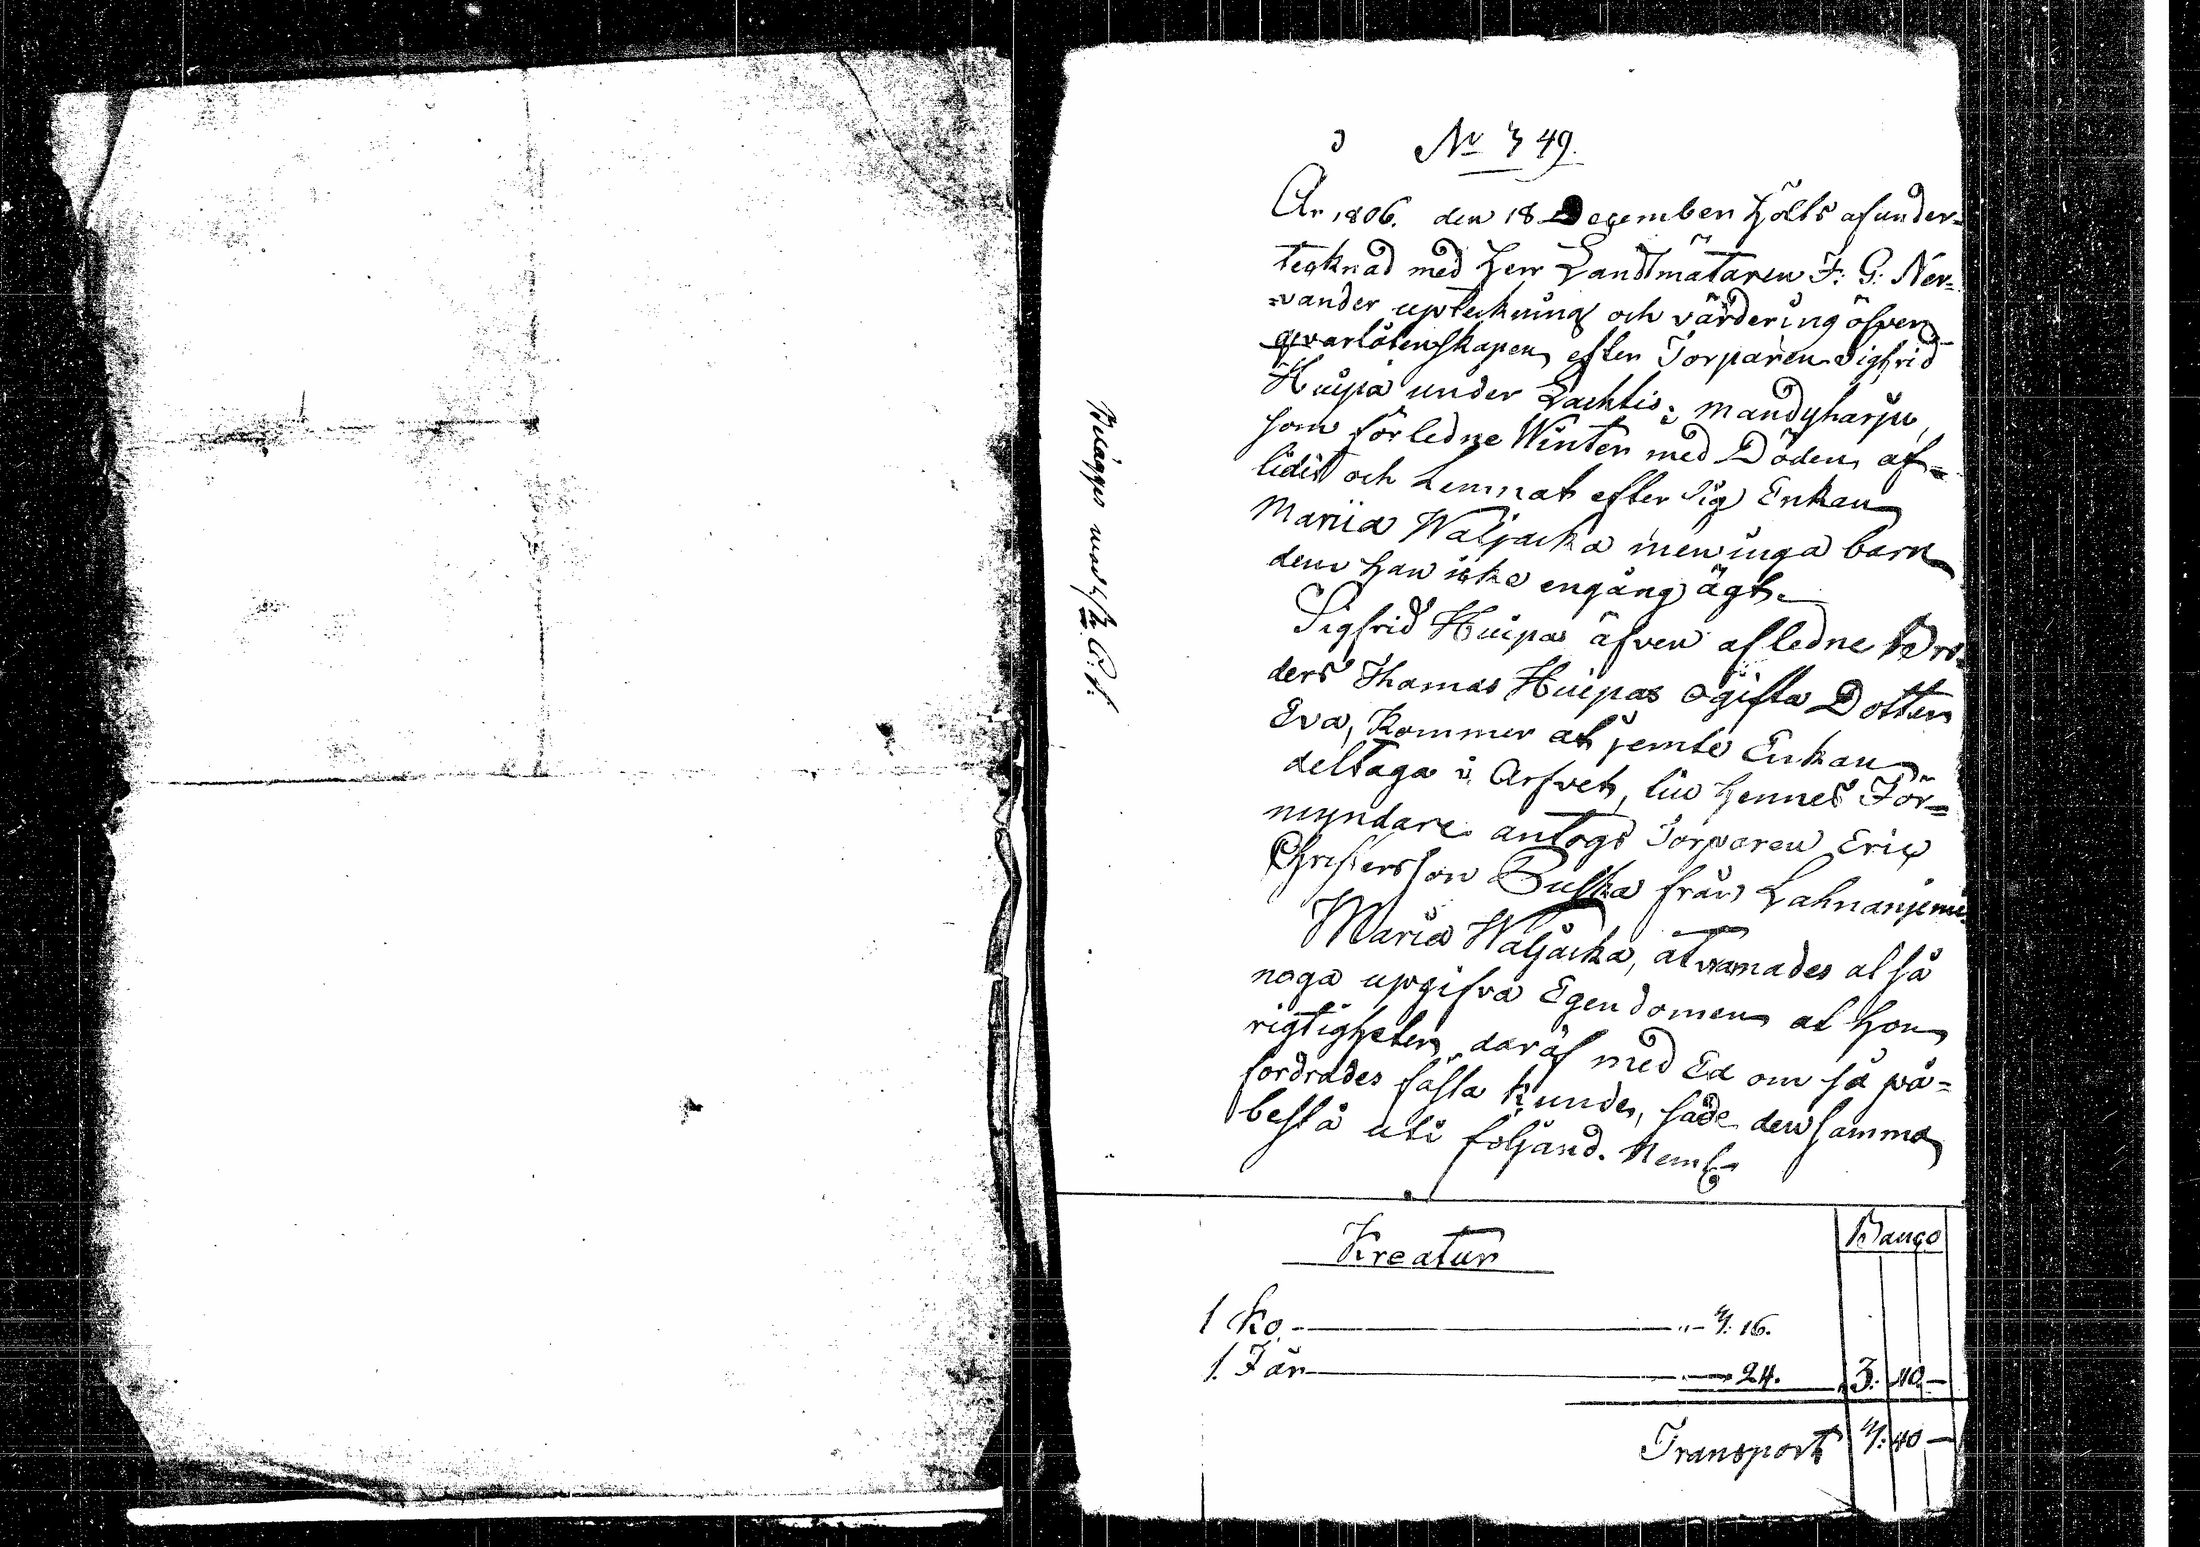 No 49.
År 1806. den 18 December hölts af under=
tecknad med Herr Landtmätaren F: G: Ner=
=vander upteckning och värdering öfver
qvarlåtenskapen efter Torparen Sigfrid
Huipa under Lachtis i Mandyharju,
som förledne Winter med Döden af=
lidit och Lemnat efter sig Enkan
Maria Waljacka men inga barn
dem han icke engång ägt.
Sigfrid Huipas äfven afledne Bro=
ders Thomas Huipas ogifta Dotter
Eva, kommer at jemte Enkan
deltaga i Arfvet, liw hennes För=
myndare antogs Torparen Eric
Christersson Puska från Lahnaniemi
Maria Waljacka, åtvarnades alså
noga upgifva Egendomen at hon
rigtigheten däraf med Ed om så på=
fordrades fästa kunde, sade densamma
bestå uti följand. Neml
Kreatur
Banco
1 Ko — 16.
1. Får — 24. 3: 40 —
Transport 40 —